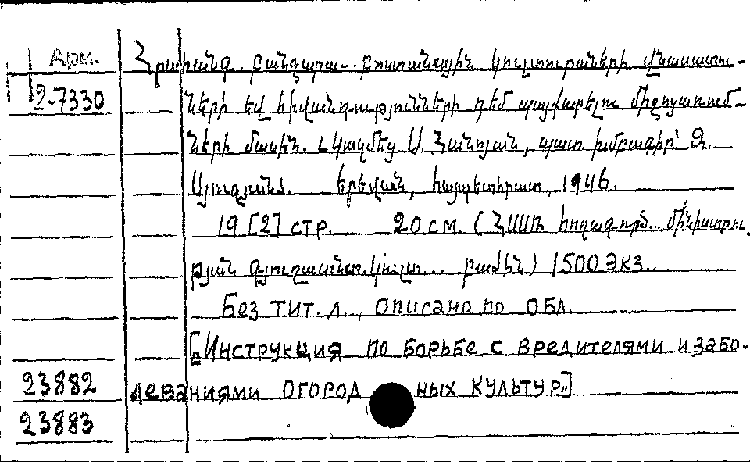 Арм. Հրահանգ բանջարա-բոստանային կուլտուրաների վնասատու-
2-7330 ների եվ հիվանդությունների դեմ պայքարելու միջոցառում-
ների մասին. Կազմեց Ա. Հանոյան, պատ. խմբագիր՝ Զ.
Երեվան, հայպետհրատ, 1946.
19 [2] стр. 20 см. (ՀՍՍՌ հողագործ. մինիստրու
թյան բաժին) 1500 экз.
Без тит. л., описано по обл.
[„Инструкция по борьбе с вредителями и забо-
23882 леваниями огородных культур"]
23883